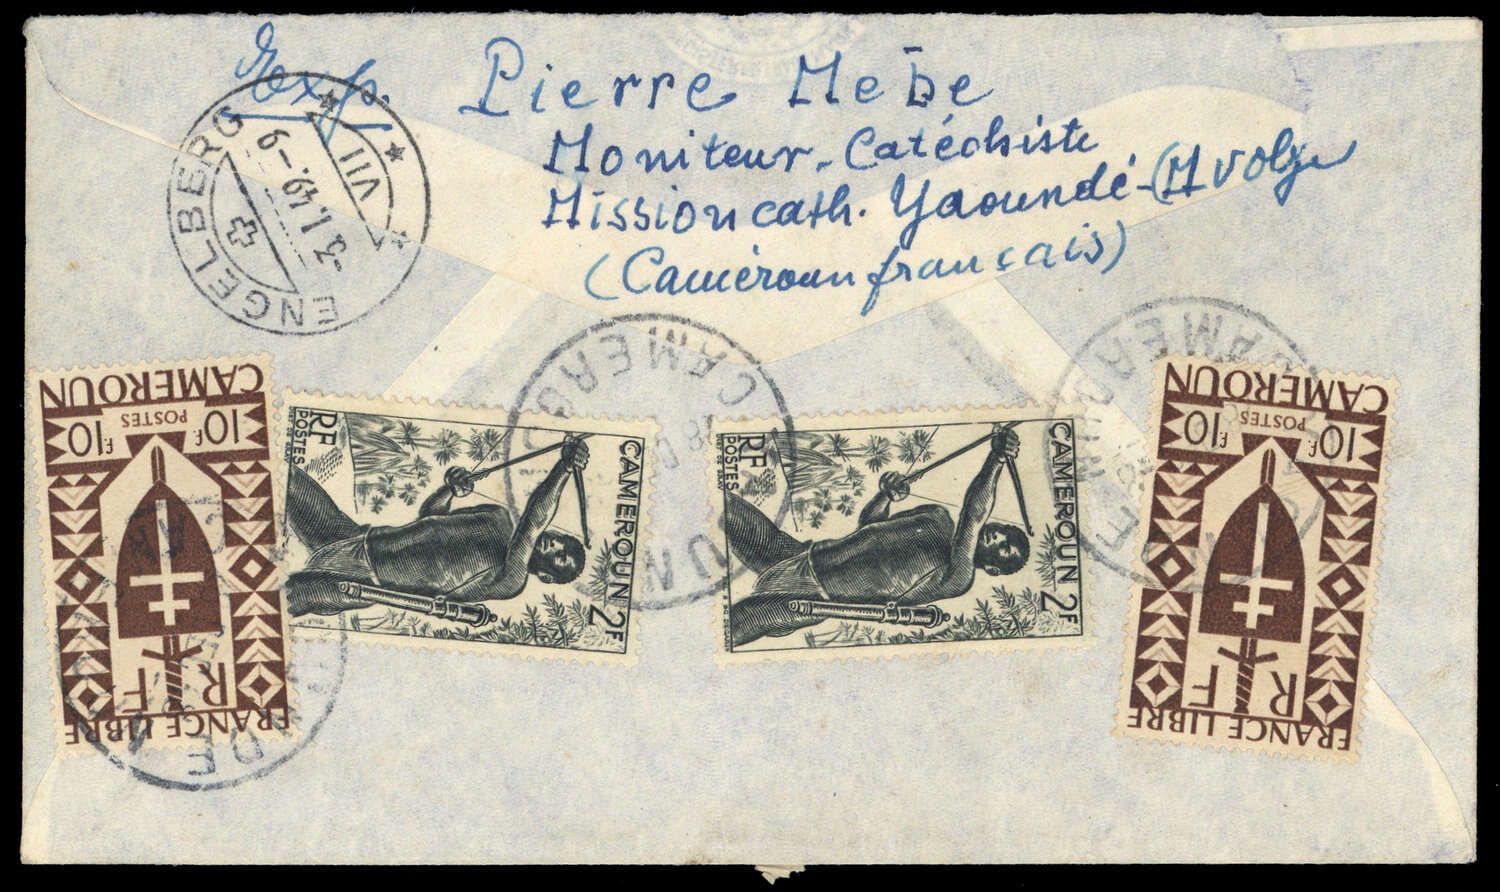 Exp. Pierre Mebe
Moniteur-Catéchiste
Mission cath. Yaoundé-(Mvolye
(Caméroun français)
ENGELBERG
-3.1.49.-9
VII
CAMEROUN
10F. POSTES 10F.
RF
FRANCE LIBRE
CAMEROUN 2F
RF
POSTES
CAMEROUN 2F
RF
POSTES
CAMEROUN
10F. POSTES 10F.
RF
FRANCE LIBRE
CAMEROUN